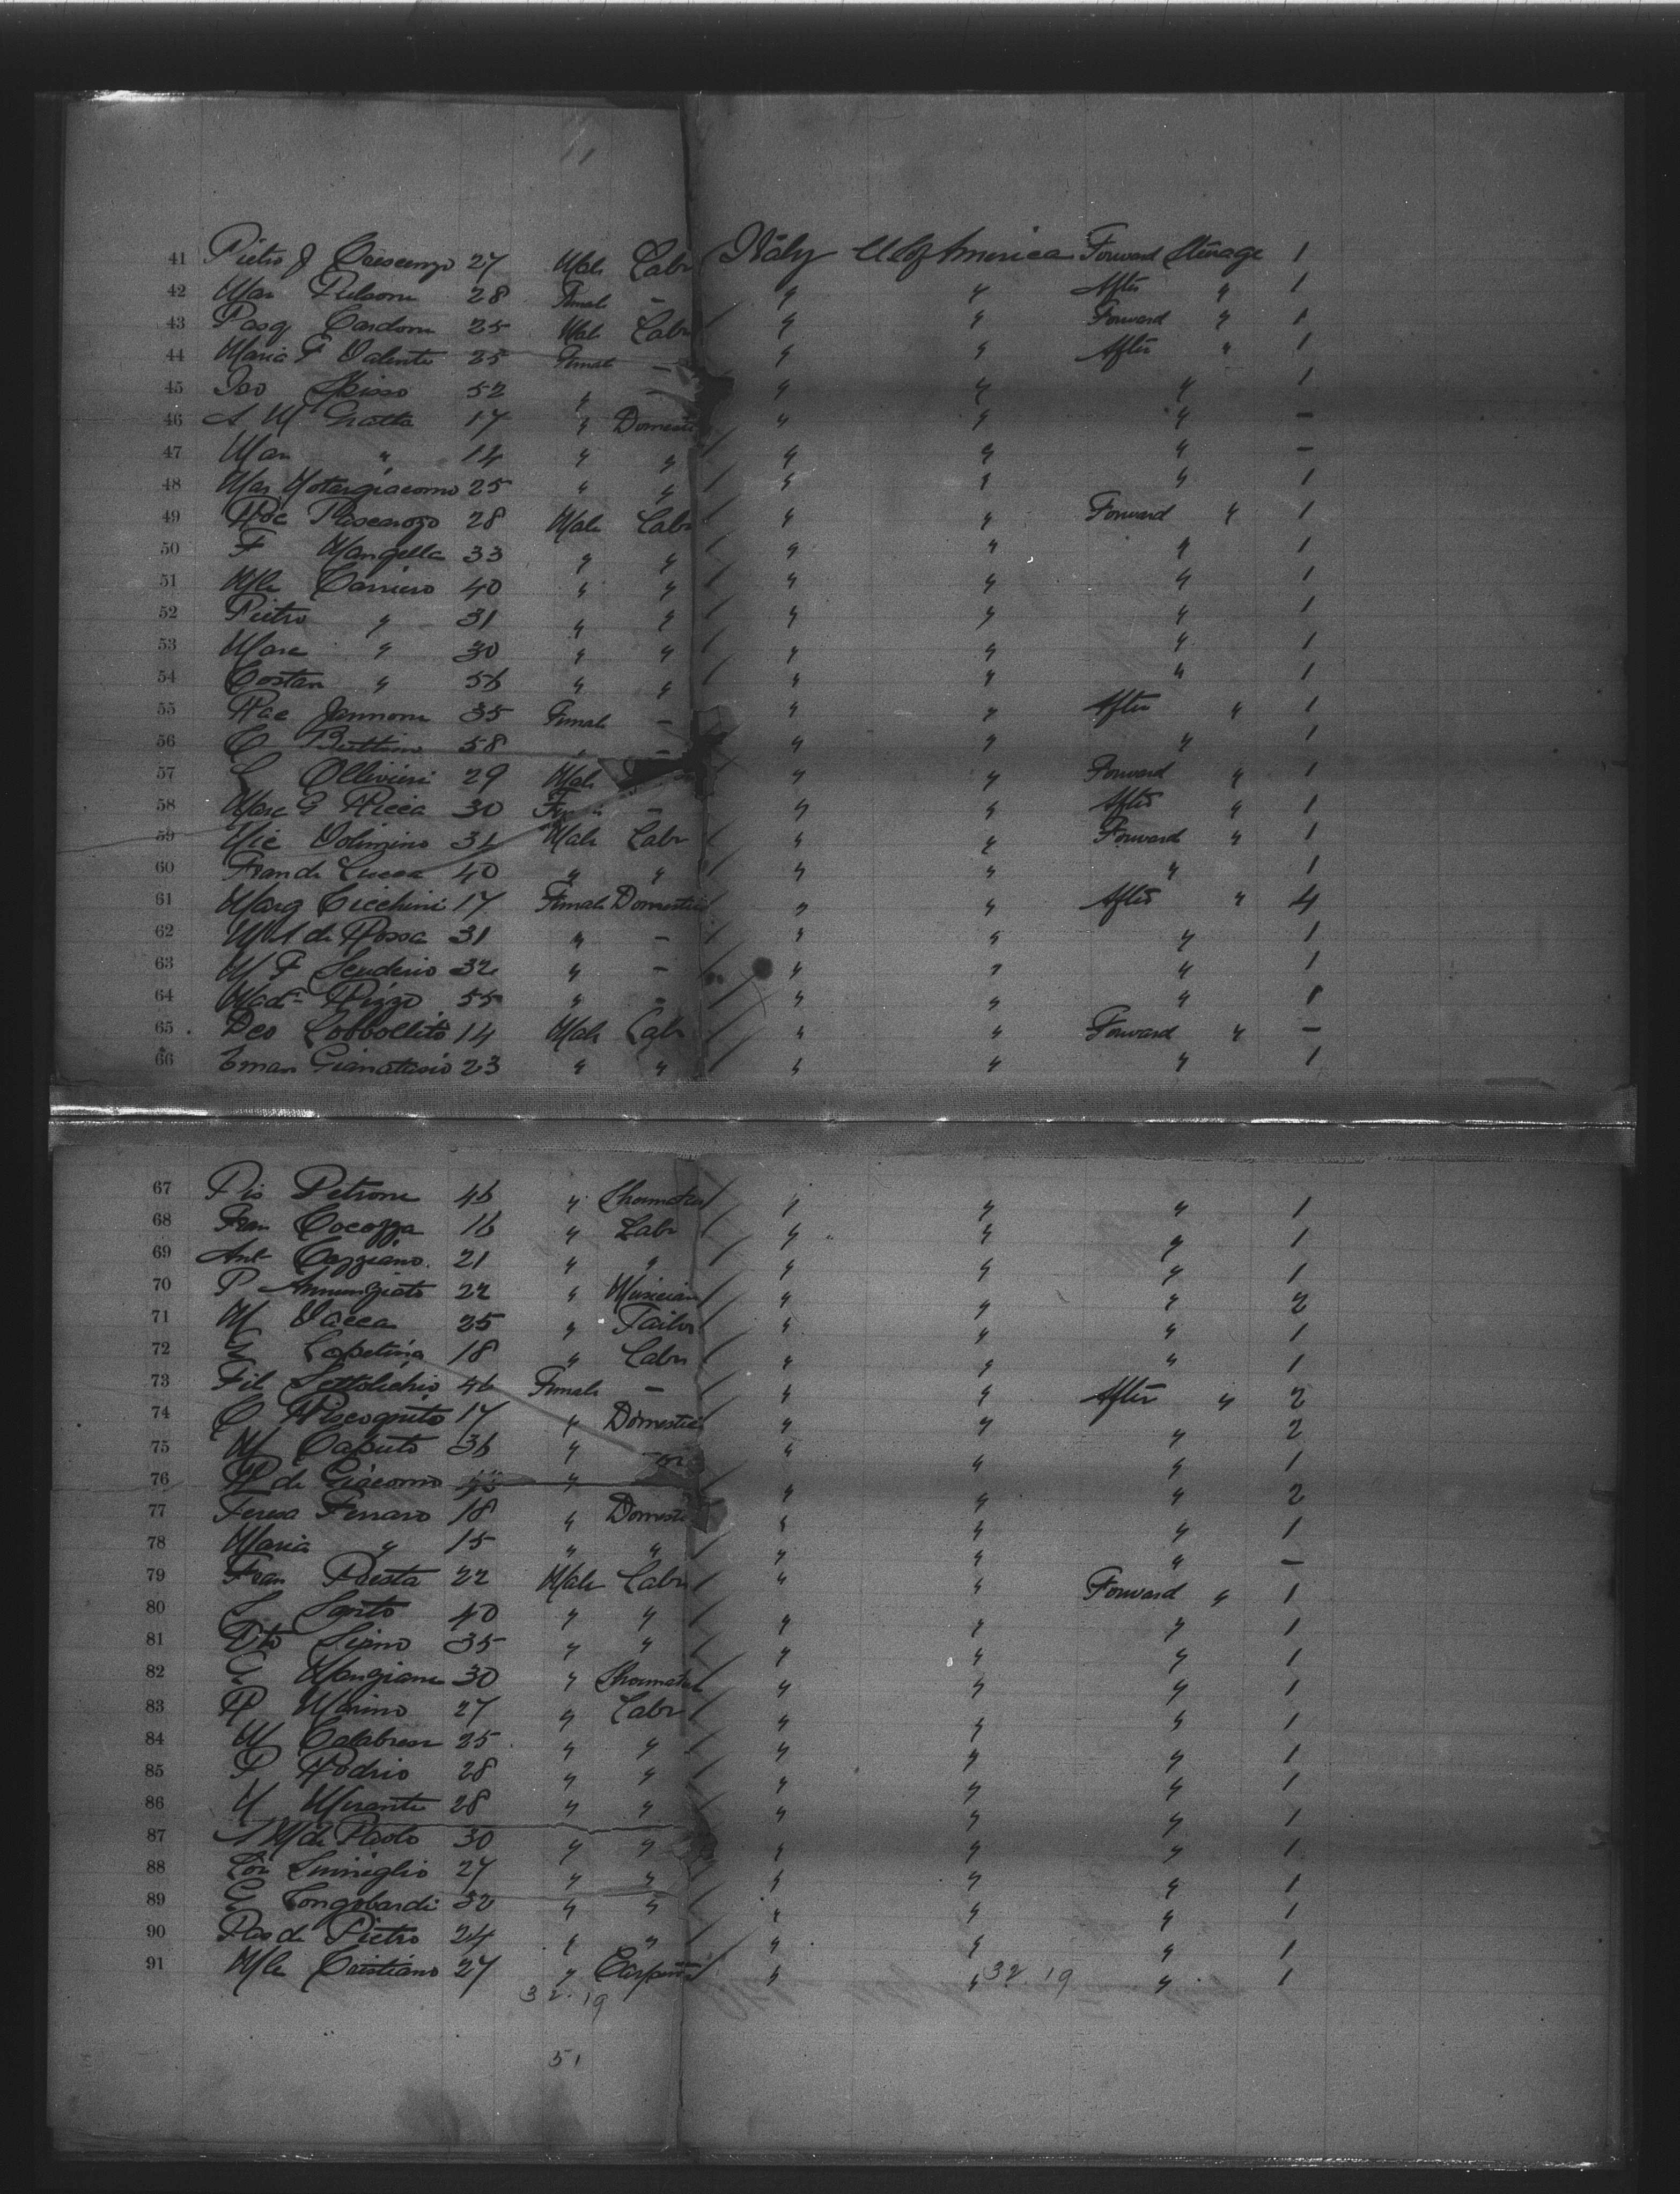 41 Pietro J Crescenzo 27 Male Labr Italy U S of America Forward Steerage 1
42 Mar 28 Female — " " After " 1
43 Pasq Cardone 25 Male Labr " " Forward " 1
44 Maria F Valente 25 Female — " " After " 1
45 52 " — " " " 1
46 A M Gratta 17 " Domestic " " " —
47 Mar " 14 " " " " " —
48 Mar Notargiacomo 25 " " " " " 1
49 28 Male Labr " " Forward " 1
50 F Mangella 33 " " " " " 1
51 Mle Carriero 40 " " " " " 1
52 Pietro " 31 " " " " " 1
53 " 30 " " " " " 1
54 Costan " 56 " " " " " 1
55 Rac Jannone 35 Female — " " After " 1
56 C 58 " — " " " 1
57 L Ollivieri 29 Male " " Forward " 1
58 Marc G Ricca 30 — " " After " 1
59 Nic Volimino Male Labr " " Forward " 1
60 Fran di Lucca 40 " " " " " 1
61 Marg Cicchini 17 Female Domestic " " After " 4
62 M A di Rosa 31 " — " " " 1
63 M F Scuderio 32 " — " " " 1
64 Rizzo 55 " — " " " 1
65 14 Male Labr " " Forward " —
66 Eman Gianatasio 23 " " " " " 1
67 Pio Petrone 46 " Shoemaker " " " 1
68 Fran Cocozza 16 " Labr " " " 1
69 Ant 21 " " " " " 1
70 P Annunziato 22 " Musician " " " 2
71 M Vacca 25 " Tailor " " " 1
72 18 " Labr " " " 1
73 Fil 46 Female — " " After " 2
74 C Riscognito 17 " Domestic " " " 2
75 M Caputo 36 " — " " " 1
76 R di Giacomo " " " " 2
77 Teresa Ferraro 18 " Domestic " " " 1
78 Maria " 15 " " " " " —
79 Fran Presta 22 Male Labr " " Forward " 1
80 S 40 " " " " " 1
81 35 " " " " " 1
82 G Mangiane 30 " Shoemaker " " " 1
83 R Marino 27 " Labr " " " 1
84 M Calabrese 25 " " " " " 1
85 P Rodrio 28 " " " " " 1
86 N Merante 28 " " " " " 1
87 A M di Paolo 30 " " " " " 1
88 27 " " " " " 1
89 G Longobardi 32 " " " " " 1
90 Pas di Pietro 24 " " " " " 1
91 Mle Cristiano 27 " " " " 1
32.19 32.19
51